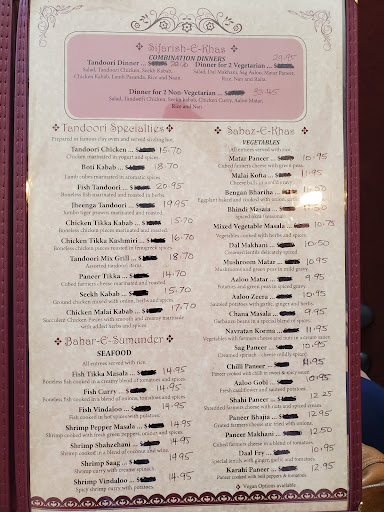 Sifarish-E-Khas
COMBINATION DINNERS
Tandoori Dinner ... $
Salad, Tandoori Chicken, Seekh Kabab,
Chicken Kabab, Lamb Pasanda, Rice and Naan
Dinner for 2 Vegetarian ... $ 29.95
Salad, Dal Makhani, Sag Aloo, Matar Paneer,
Rice, Nan and Raita
Dinner for 2 Non-Vegetarian ... $
Rice and Nan
Tandoori Specialties
Prepared in famous clay oven and served sizzling hot.
Tandoori Chicken ... $ 15.70
Chicken marinated in yogurt and spices
Boti Kabab ... $ 18.70
Lamb cubes marinated in exotic spices
Fish Tandoori ... $ 20.95
Boneless fish marinated and roasted in herbs
Jheenga Tandoori ... $ 19.95
Jumbo tiger prawns marinated and roasted
Chicken Tikka Kabab ... $ 15.70
Boneless chicken pieces roasted in herbs and spices
Chicken Tikka Kashmiri ... $ 16.70
Boneless chicken pieces roasted in fenugreek spices
Tandoori Mix Grill ... $ 18.70
Assorted tandoori items
Paneer Tikka ... $ 14.70
Cubed farmers cheese marinated and roasted
Seekh Kabab ... $ 15.70
Ground chicken mixed with onion, herbs and spices
Chicken Malai Kabab ... $ 17.70
Succulent Chicken Pieces with smooth and creamy marinade
with added herbs and spices
Bahar-E-Sumunder
SEAFOOD
All entrees served with rice
Fish Tikka Masala ... $ 14.95
Boneless fish cooked in a creamy blend of tomatoes and spices
Fish Curry ... $ 14.95
Boneless fish cooked in a blend of onions, tomatoes and spices
Fish Vindaloo ... $ 14.95
Fish cooked in hot spice with potatoes
Shrimp Pepper Masala ... $ 14.95
Shrimp cooked with fresh green peppers, onions and spices
Shrimp Shahzehani ... $ 14.95
Shrimp cooked in a blend of coconut and wine
Shrimp Saag ... $ 14.95
Shrimp curry with creamy spinach
Shrimp Vindaloo ... $ 14.95
Spicy shrimp curry with potatoes
Sabaz-E-Khas
VEGETABLES
All entrees served with rice
Matar Paneer ... $ 10.95
Cubed farmers cheese with green peas
Malai Kofta ... $ 11.95
Cheese balls in
Bengan Bhartha
Eggplant baked and cooked with onion, garlic
Bhindi Masala ... $
Spiced okra
Mixed Vegetable Masala ... $ 10.75
Vegetables cooked with herbs and spices
Dal Makhani ... $ 10.50
Creamed lentils delicately spiced
Mushroom Matar ... $ 10.95
Mushroom and green peas in mild gravy
Aaloo Matar ... $ 9.95
Potatoes and green peas in spiced gravy
Aaloo Zeera ... $ 10.95
Sautéed potatoes with garlic, ginger and herbs
Chana Masala ... $ 9.95
Garbanzo beans in a special blend of spices
Navratan Korma ... $ 11.95
Vegetables with farmers cheese and nuts in a cream sauce
Sag Paneer ... $ 10.95
Creamed spinach - cheese mildly spiced
Chilli Paneer ... $ 11.95
Paneer cooked with chilli in sweet & spicy sauce
Aaloo Gobi ... $ 10.95
Fresh cauliflower and sauteed potatoes
Shahi Paneer ... $ 12.25
Shredded farmers cheese with nuts and spiced cream
Paneer Bhajia ... $ 12.95
Grated farmers cheese stir fried with onions
Paneer Makhani ... $ 12.50
Cubed farmers cheese in a blend of tomatoes
Daal Fry ... $ 10.95
Special lentils with ginger, garlic and tomatoes.
Karahi Paneer ... $ 12.95
Paneer cooked with bell peppers & tomatoes.
Vegan Options available